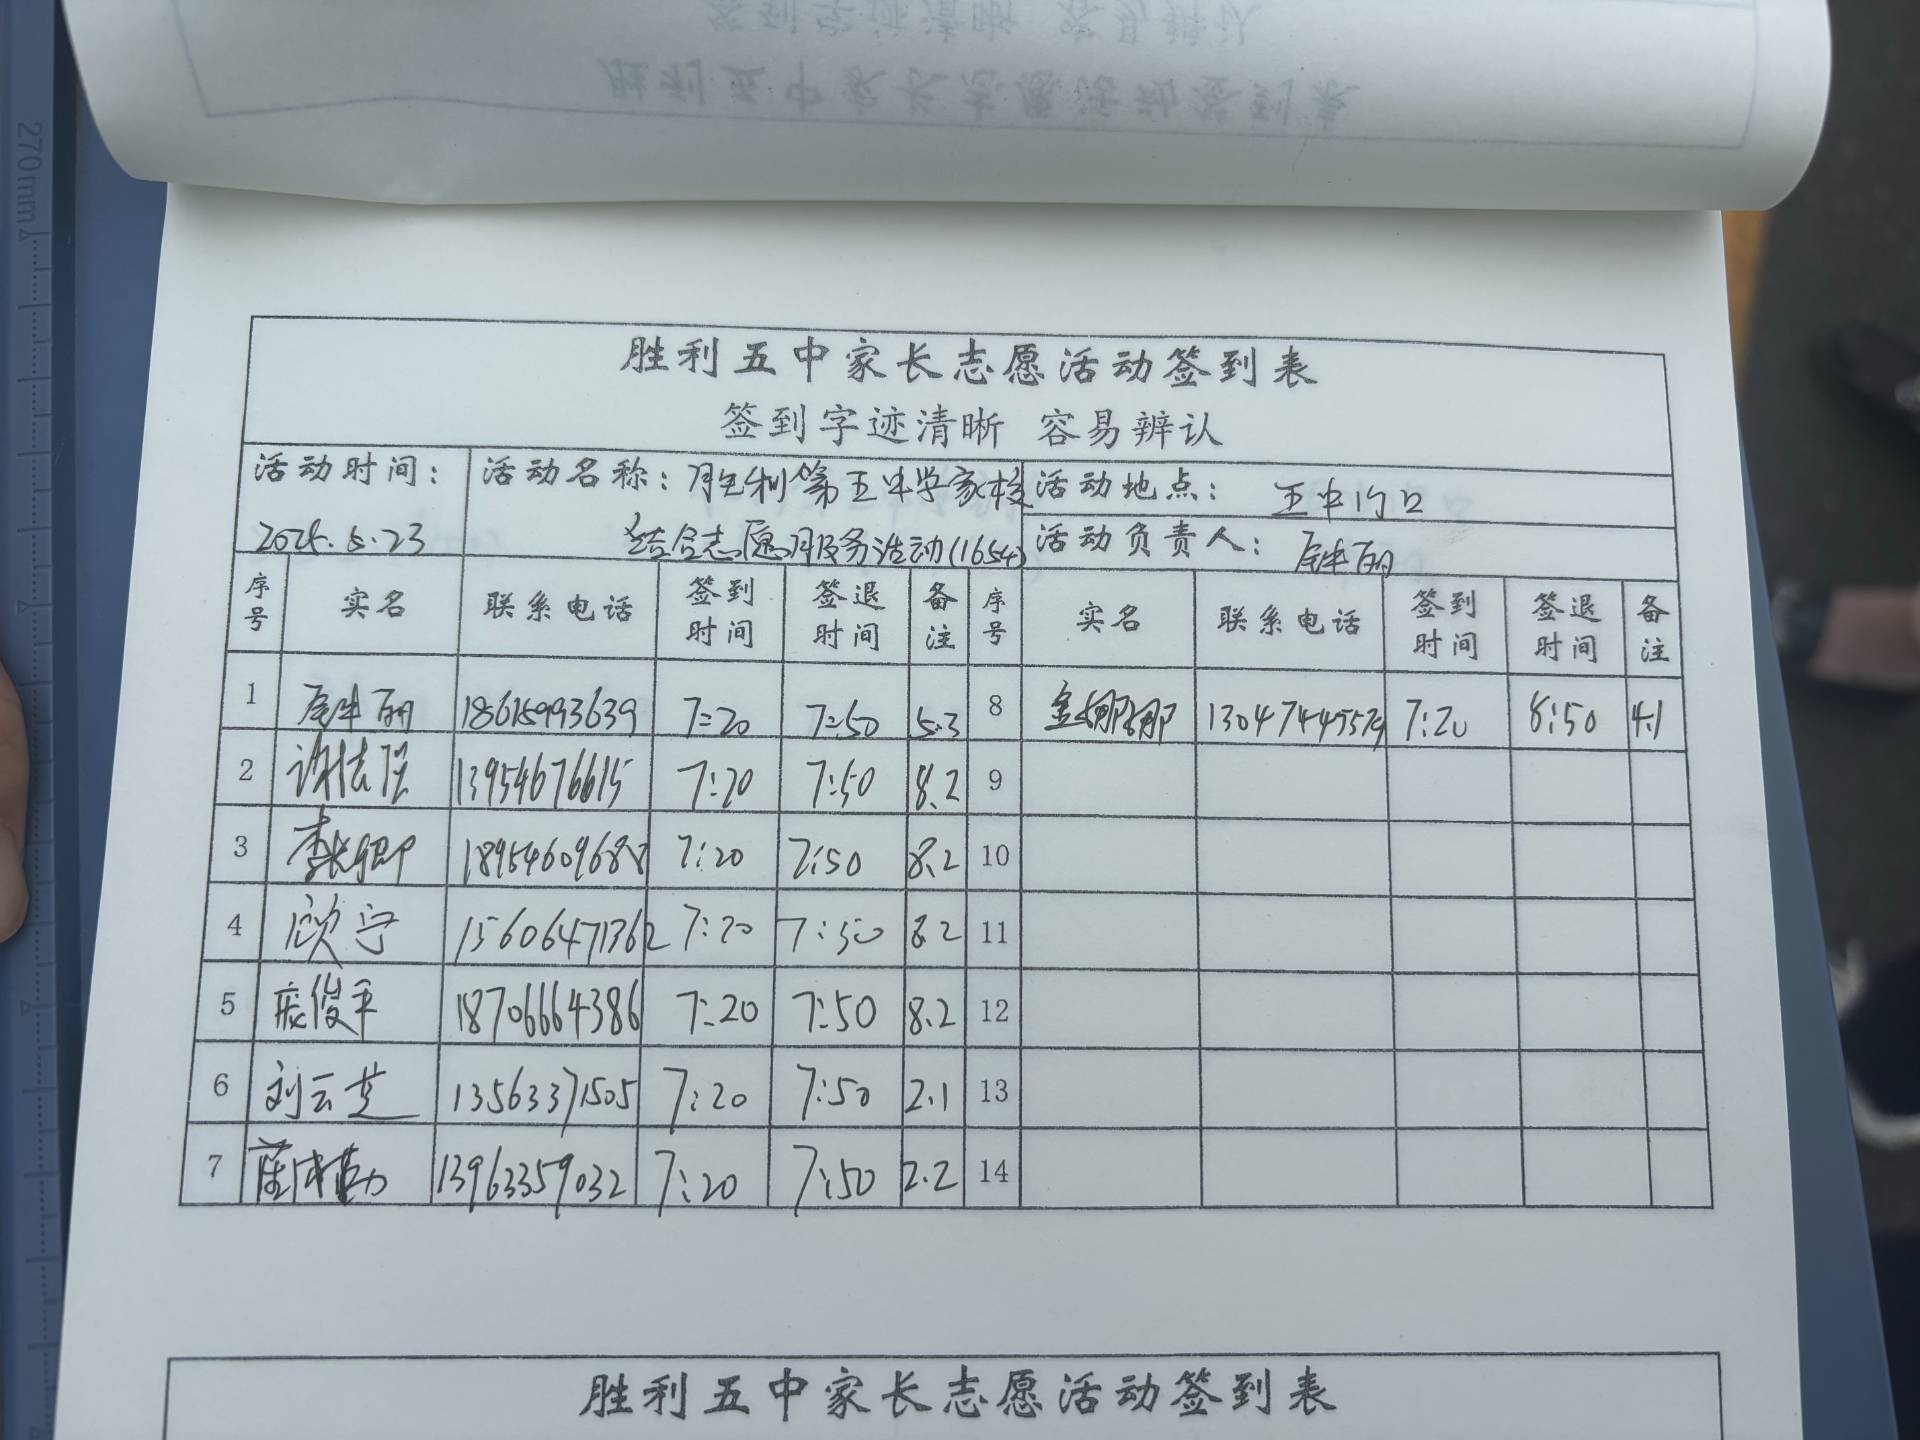 胜利五中家长志愿活动签到表
签到字迹清晰 容易辨认
活动时间: 活动名称: 胜利第五中学家校 活动地点: 五中门口
5.23 结合志愿服务活动(1654) 活动负责人: 丽
序号 实名 联系电话 签到时间 签退时间 备注 序号 实名 联系电话 签到时间 签退时间 备注
1 丽 18615993639 7:20 7:50 5.3 8 金娜娜 7:20 8:50 4.1
2 13954676615 7:20 7:50 8.2 9
3 李 18954609688 7:20 7:50 8.2 10
4 欣宁 15606471362 7:20 7:50 8.2 11
5 俊平 18706664386 7:20 7:50 8.2 12
6 刘云芝 13563371505 7:20 7:50 2.1 13
7 13963359032 7:20 7:50 2.2 14
胜利五中家长志愿活动签到表